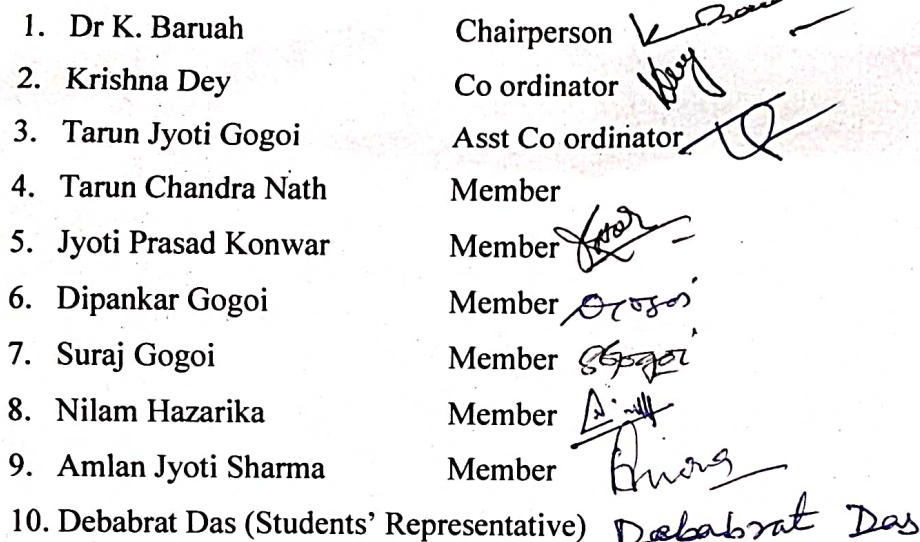 1. Dr K. Baruah Chairperson
2. Krishna Dey Co ordinator Dey
3. Tarun Jyoti Gogoi Asst Co ordinator
4. Tarun Chandra Nath Member
5. Jyoti Prasad Konwar Member
6. Dipankar Gogoi Member
7. Suraj Gogoi Member SGogoi
8. Nilam Hazarika Member
9. Amlan Jyoti Sharma Member
10. Debabrat Das (Students' Representative) Debabrat Das